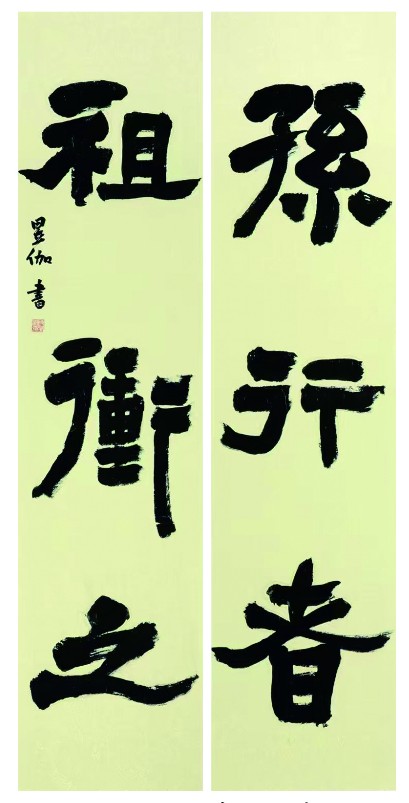 孫行者
祖衝之
伽書